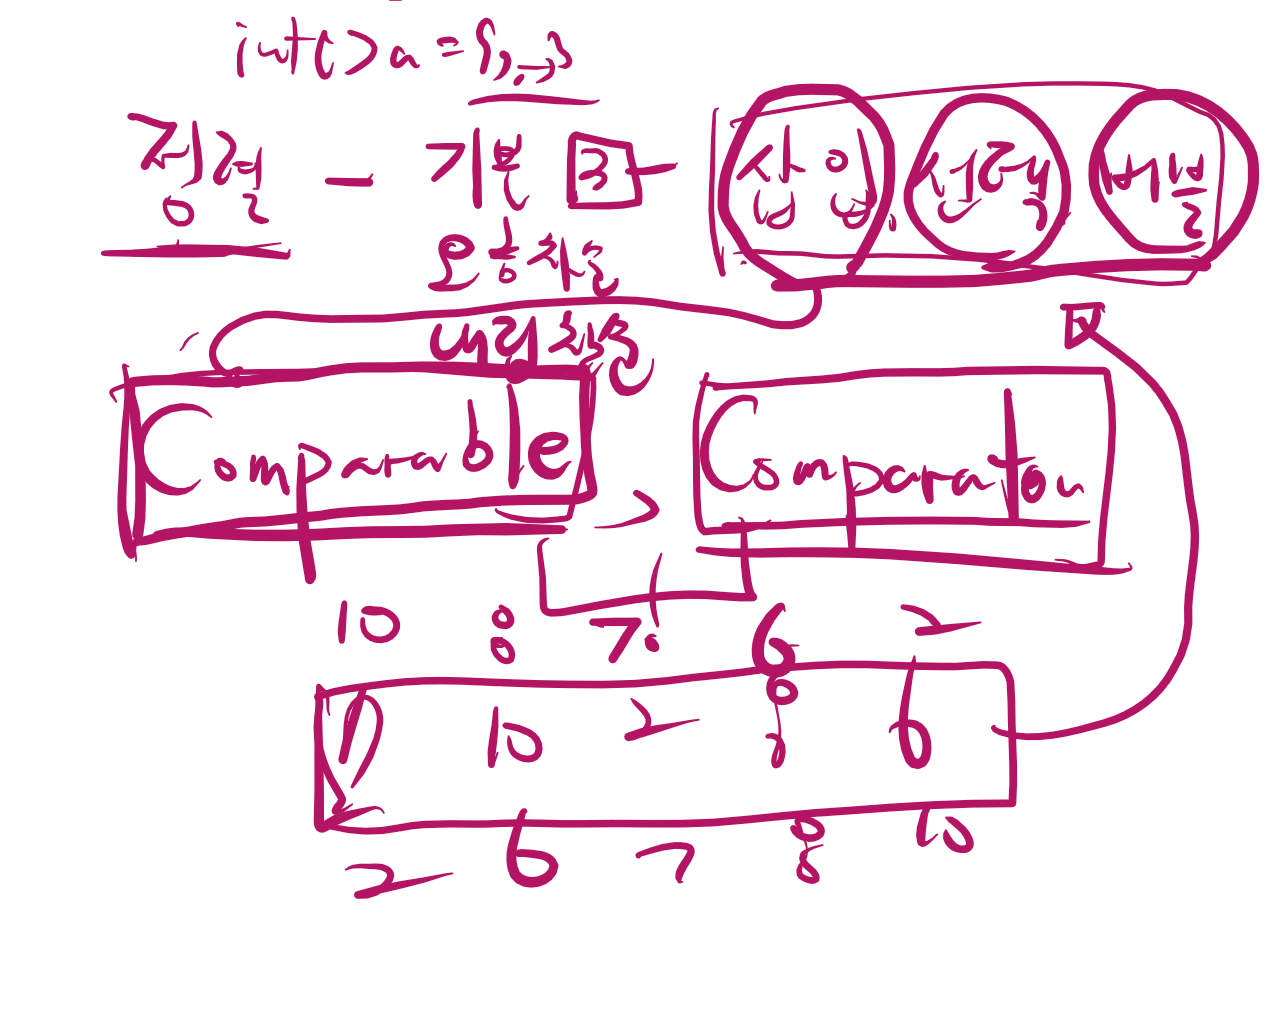 int[] a = { , , → }
정렬 - 기본 3 - 삽입, 선택 버블
오름차순
내림차순
Comparable > Comparator
10 8 7 6 2
7 10 2 8 6
2 6 7 8 10